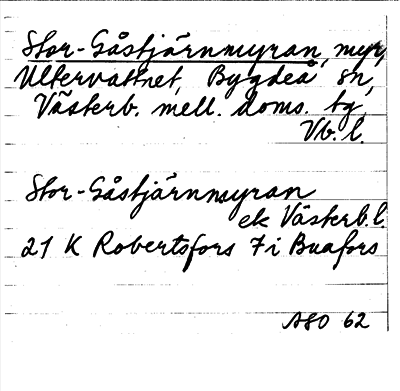 Stor-Gåstjärnmyran, myr,
Ultervattnet, Bygdeå sn,
Västerb. mell. doms. tg,
Vb. l.
Stor-Gåstjärnmyran
ek Västerb. l.
21 K Robertsfors 7 i Buafors
ASO 62